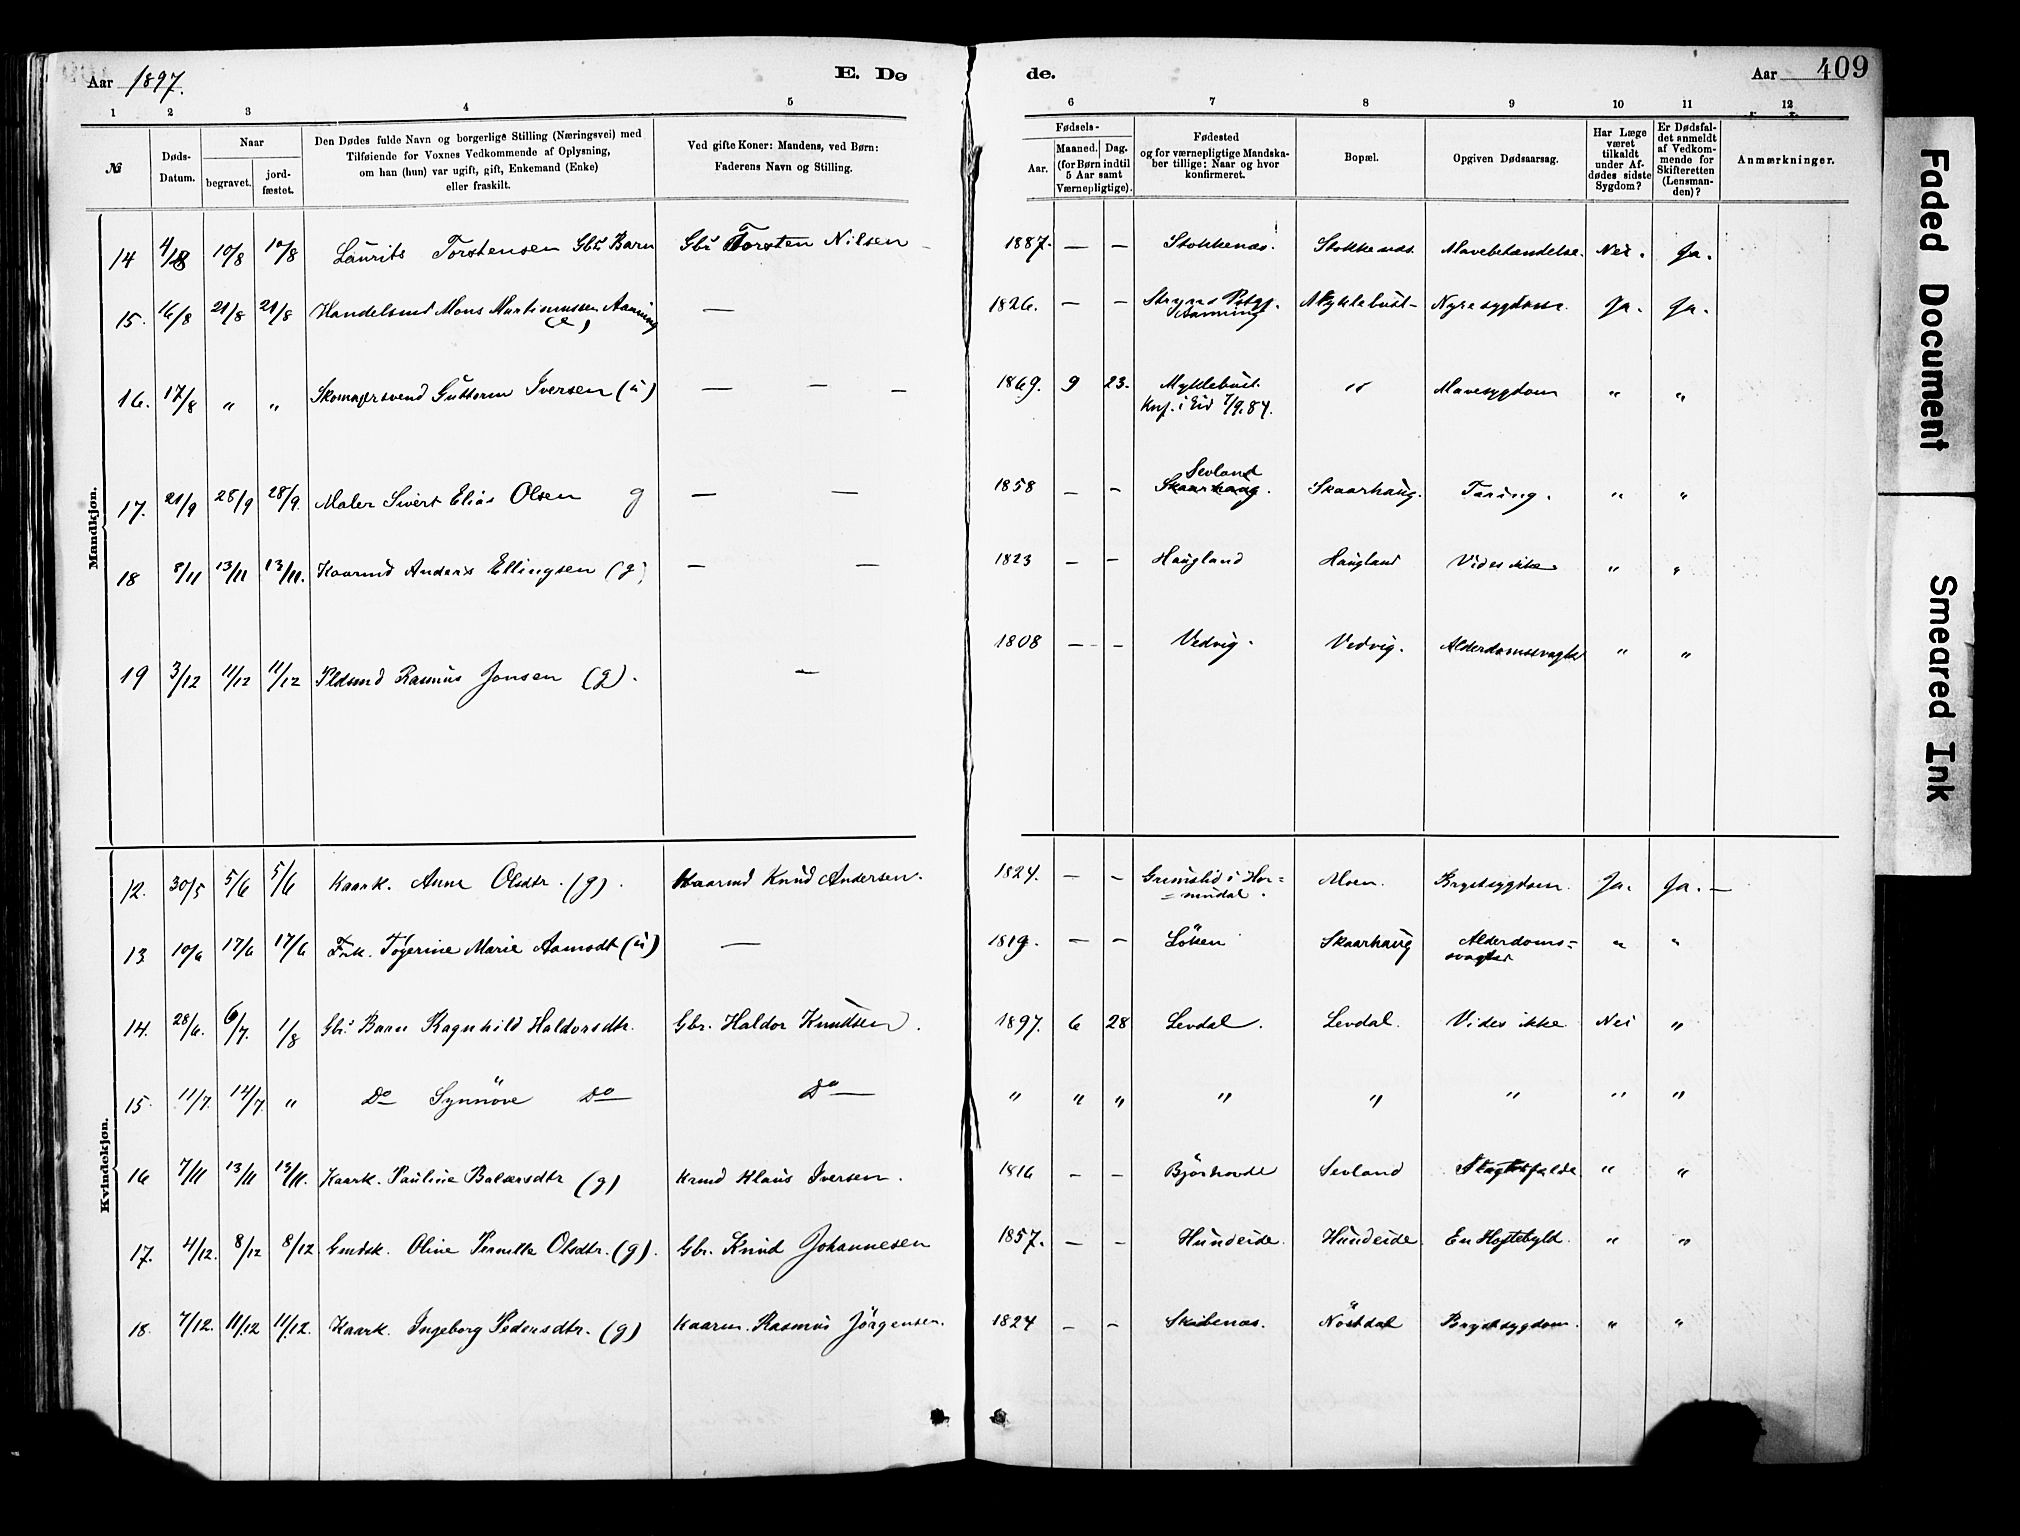 Aar 1897.
E. Dø
de.
Aar 409
1 2 3 4 5 6 7 8 9 10 11 12
№
Døds-Datum.
Naar
begravet.
jord-fæstet.
Den Dødes fulde Navn og borgerlige Stilling (Næringsvei) med
Tilføiende for Voxnes Vedkommende af Oplysning,
om han (hun) var ugift, gift, Enkemand (Enke)
eller fraskilt.
Ved gifte Koner: Mandens, ved Børn:
Faderens Navn og Stilling.
Fødsels-
Aar.
Maaned. Dag.
(for Børn indtil
5 Aar samt
Værnepligtige).
Fødested
og for værnepligtige Mandska-
ber tillige: Naar og hvor
konfirmeret.
Bopæl.
Opgiven Dødsaarsag.
Har Læge
været
tilkaldt
under Af-
dødes sidste
Sygdom?
Er Dødsfal-
det anmeldt
af Vedkom-
mende for
Skifteretten
(Lensman-
den)?
Anmærkninger.
Mandkjøn.
14 4/8 10/8 10/8 Laurits Torstensen Gbrs Barn Gbr Torsten Nilsen 1887. — — Stokkenæs. Stokkenæs. Mavebetændelse. Nei. Ja.
15. 16/8 21/8 21/8 Handelsmd Mons Martinussen Aaning (e) — 1826. — — Stryns Prstgj. Aanning Myklebust Nyresygdom. Ja. Ja.
16. 17/8 " " Skomagersvend Guttorm Iversen (u) — — — 1869. 9 23. Myklebust. Knf. i Eid 7/9.84. " Mavesygdom " "
17. 21/9 28/9 28/9. Maler Sivert Elias Olsen g — — 1858 — — Sevland Skaarhaug. Skaarhaug. Tæring. " "
18 8/11 13/11 13/11. Kaarmd Anders Ellingsen (g) — — 1823 — — Haugland Haugland Vides ikke " "
19 3/12 11/12 11/12 Pldsmd Rasmus Jonsen (g). — 1808 — — Vedvig. Vedvig. Alderdomssvaghed " "
Kvindekjøn.
12. 30/5 5/6 5/6 Kaark. Anne Olsdtr. (g). Kaarmd Knud Andersen. 1824. — — Grimslid i Hor=
=nindal. Moen. Brystsygdom. Ja. Ja. —
13 10/6 17/6 17/6 Frk. Tøgerine Marie Aamodt (u) — 1819. — — Løken Skaarhaug Alderdoms=
svaghed " "
14. 28/6. 6/7. 1/8 Gbrs Barn Ragnhild Haldorsdtr. Gbr. Haldor Knudsen. 1897. 6 28 Levdal. Levdal. Vides ikke Nei "
15. 11/7. 14/7. " Do Synnøve Do Do — " " " " " " " "
16 7/11 13/11 13/11. Kaark. Pauline Balsersdtr (g) Krmd Klaus Iversen. 1816 — — Bjørhovde Sevland Slagtilfælde " "
17. 4/12. 8/12 8/12 Gmdsk. Oline Pernille Olsdtr. (g). Gbr. Knud Johannesen 1857. — — Hundeide. Hundeide. En Hoftebyld. " "
18. 7/12. 11/12 11/12. Kaark. Ingeborg Pedersdtr. (g) Kaarm. Rasmus Jørgensen. 1824 — — Skibenæs. Nøstdal Brystsygdom. " "
Faded Document
Smeared Ink